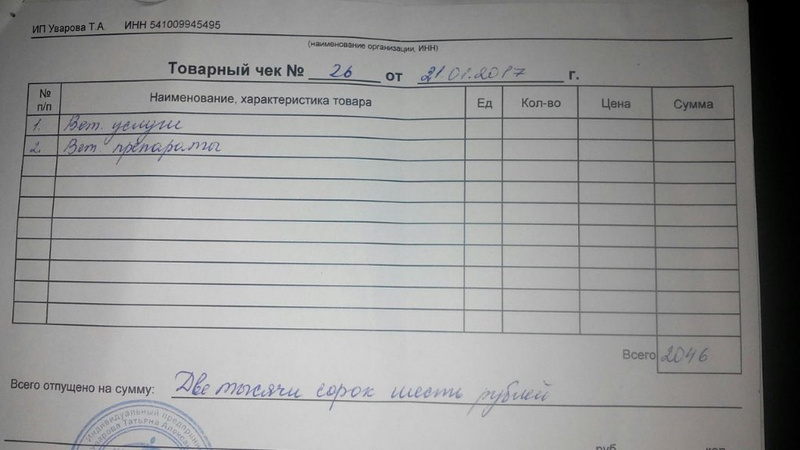 ИП Уварова Т.А. ИНН 541009945495
(наименование организации, ИНН)
Товарный чек № 26 от 21.01.2017 г.
№ п/п Наименование, характеристика товара Ед Кол-во Цена Сумма
1. Вет. услуги
2. Вет. препараты
Всего 2046
Всего отпущено на сумму: Две тысячи сорок шесть рублей
Индивидуальный предприни
Уварова Татьяна
руб. коп.